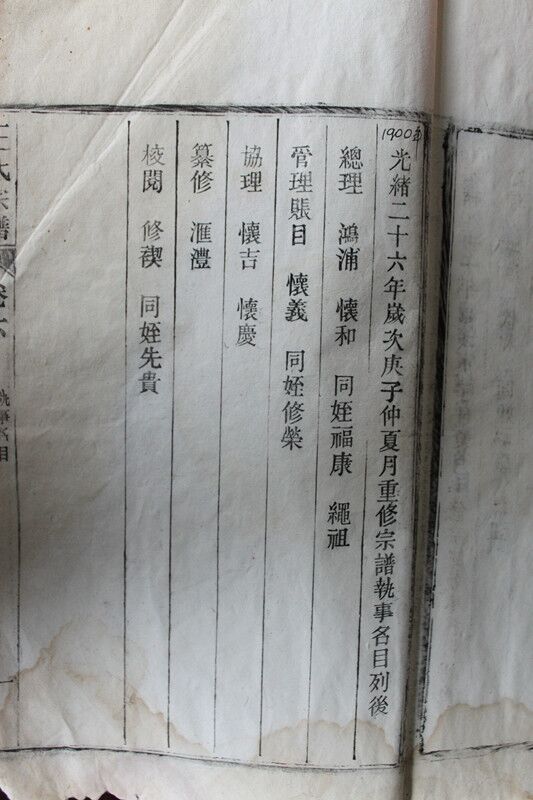 1900年
光緒二十六年歲次庚子仲夏月重修宗譜執事名目列後
總理 鴻浦 懷和 同姪福康 繩祖
管理賬目 懷義 同姪修榮
協理 懷吉 懷慶
纂修 滙澧
校閱 修禊 同姪先貴
氏宗譜
執事名目